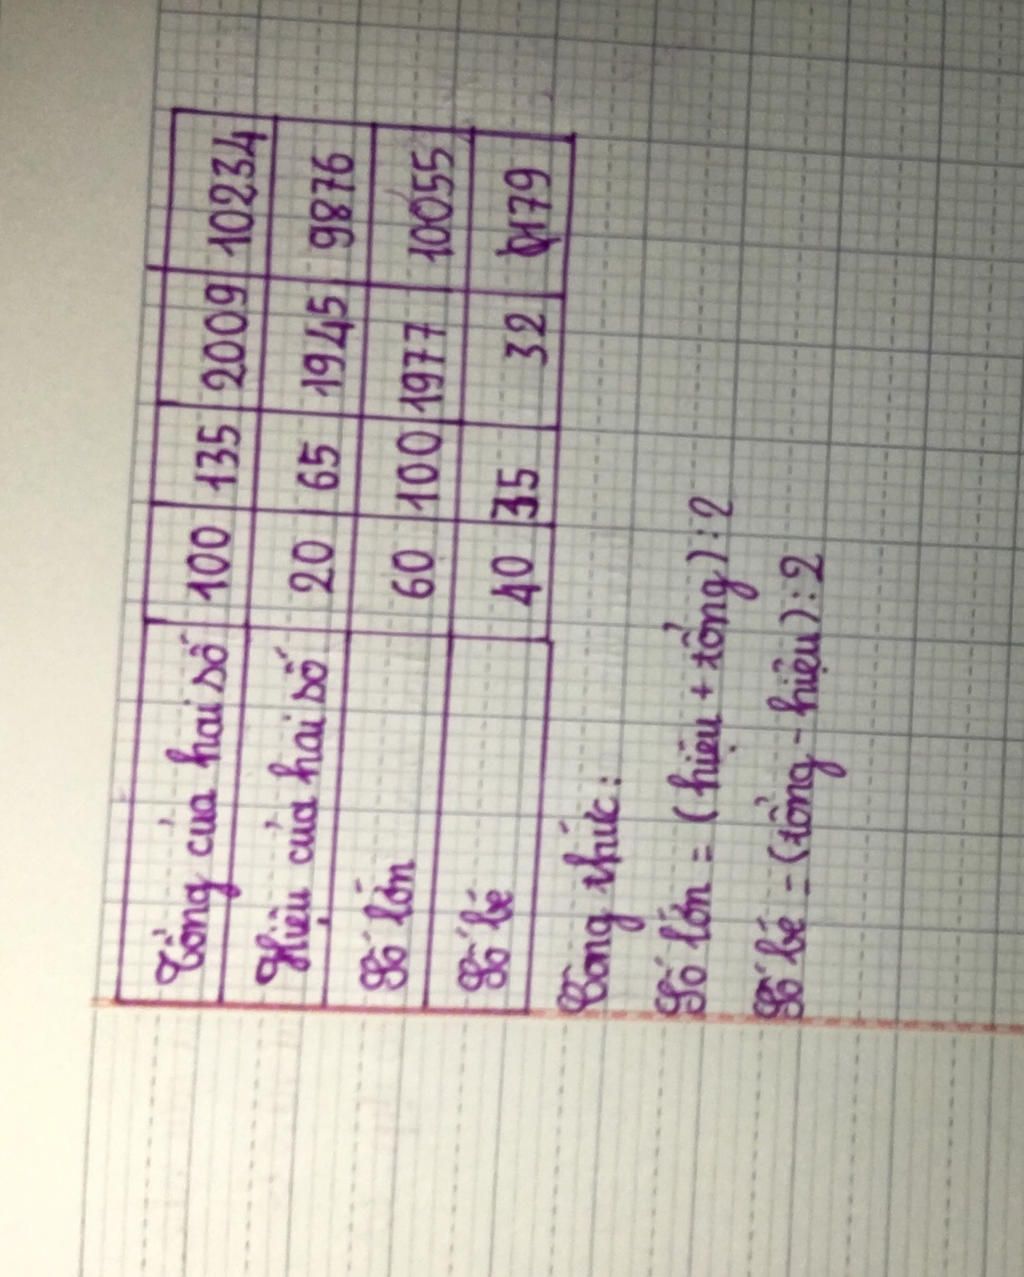 Tổng của hai số 100 135 2009 10234
Hiệu của hai số 20 65 1945 9876
Số lớn 60 100 1977 10055
Số bé 40 35 32 179
Công thức:
Số lớn = (hiệu + tổng) : 2
Số bé = (tổng - hiệu) : 2